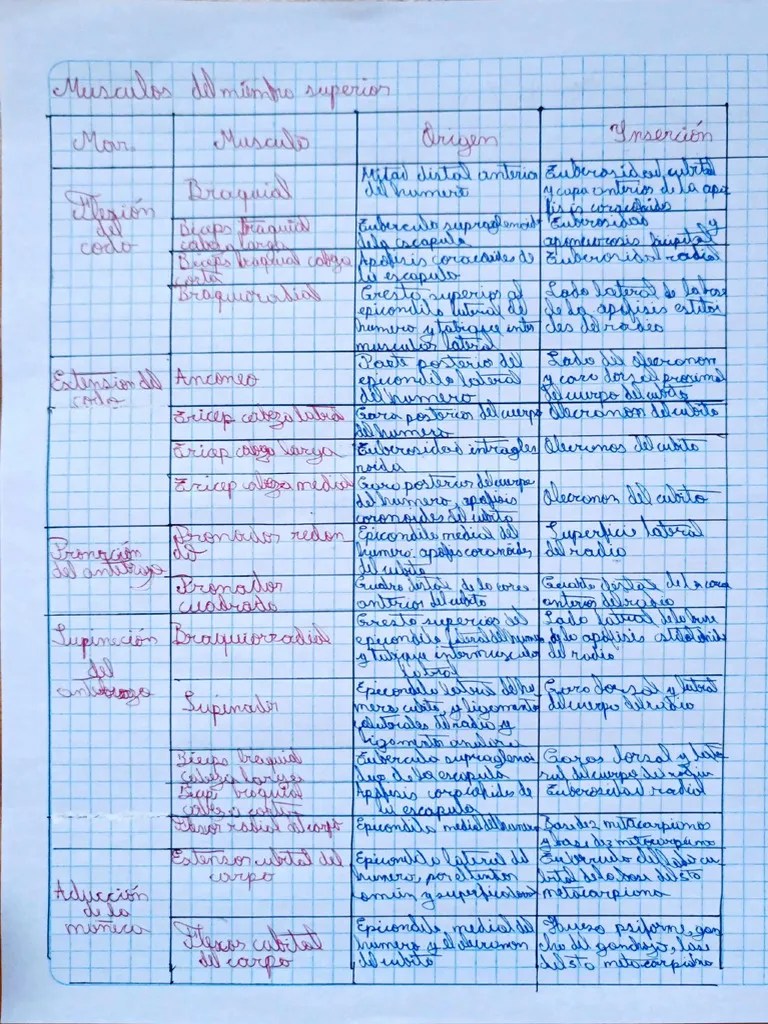 Musculos del miembro superior
Mov. Musculo Origen Inserción
Flexión
del
codo
Braquial
Mitad distal anterior
del humero
Tuberosidad cubital
y capa anterior de la apo
fisis coracoides
Biceps braquial
cabeza larga
Tuberculo supraglenoid
de la escapula
Tuberosidad y
aponeurosis bicipital
Biceps braquial cabeza
corta
Apofisis coracoides de
la escapula
Tuberosidad radial
Braquioradial
Cresta superior al
epicondilo lateral del
humero y tabique inter
musculos lateral
Lado lateral de la base
de la apofisis estiloi
des del radio
Extension del
codo
Anconeo
Parte posterior del
epicondilo lateral
del humero
Lado del olecranon
y cara dorsal proximal
del cuerpo del cubito
Tricep cabeza lateral
Cara posterior del cuerpo
del humero
Olecranon del cubito
Tricep cabeza larga
Tuberosidad infragle
noida
Olecranos del cubito
Tricep cabeza medial
Cara posterior del cuerpo
del humero, apofisis
coronoides del cubito
Olecranos del cubito
Pronación
del antebrazo
Pronador redon
do
Epicondilo medial del
humero, apofis coronoides
del cubito
Superficie lateral
del radio
Pronador
cuadrado
distal de la cara
anterior del cubito
distal del cara
anterior del radio
Supineción
del
antebrazo
Braquiorradial
Cresta superior del
epicondilo lateral del humero
y tabique intermusculo
lateral
Lado lateral de la base
de la apofisis estiloide
del radio
Supinador
Epicondilo lateral del hu
mero cubito, y ligamento
colaterales del radio y
ligamento anular
Cara dorsal y lateral
del cuerpo del radio
Biceps braquial
cabeza larga
Tuberculo supraglenoi
deo de la escapula
Caras dorsal y late
ral del cuerpo del radio
Bicep braquial
cabeza corta
Apofisis coracoides de
la escapula
Tuberosidad radial
Flexor radial del carpo
Epicondilo medial del humero
Base de 2 metacarpianos
y base de 3 metacarpiano
Aducción
de la
muñeca
Extensor cubital del
carpo
Epicondilo lateral del
humero, por el tendon
común y superficial
Tuberculo del lado cu
bital de la base del 5to
metacarpiano
Flexor cubital
del carpo
Epicondilo medial del
humero y el olecranon
del cubito
Hueso pisiforme, gan
cho del ganchoso, base
del 5to metacarpiano